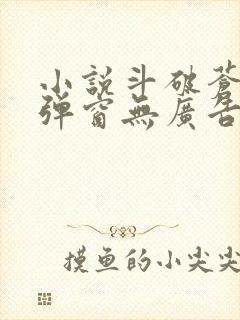 小說斗破蒼
彈窗無廣告
摸鱼的小尖尖